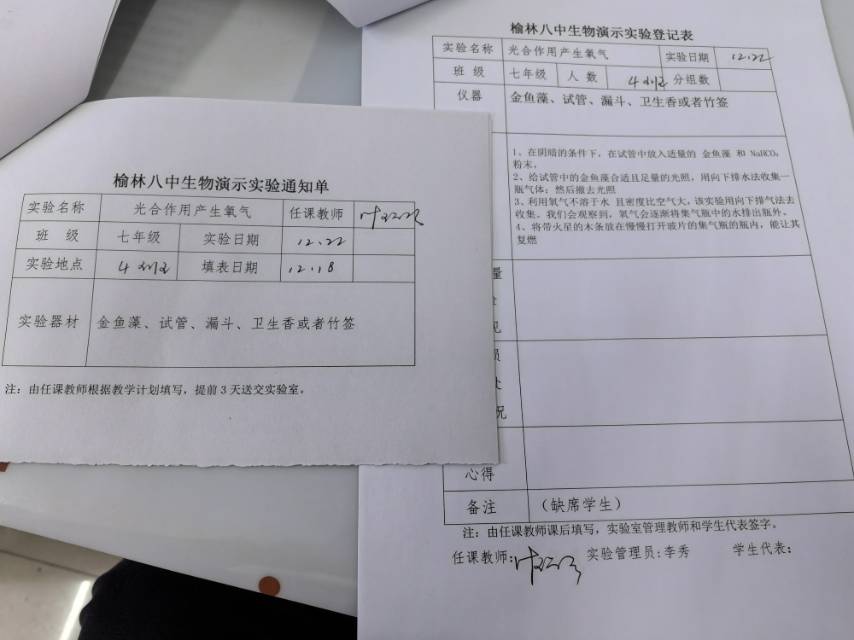 榆林八中生物演示实验通知单
实验名称 光合作用产生氧气 任课教师
班 级 七年级 实验日期 12.22
实验地点 填表日期 12.18
实验器材 金鱼藻、试管、漏斗、卫生香或者竹签
注：由任课教师根据教学计划填写，提前3天送交实验室。
榆林八中生物演示实验登记表
实验名称 光合作用产生氧气 实验日期 12.22
班 级 七年级 人 数 分组数
仪器 金鱼藻、试管、漏斗、卫生香或者竹签
1、在阴暗的条件下，在试管中放入适量的 金鱼藻 和 NaHCO₃
粉末。
2、给试管中的金鱼藻合适且足量的光照，用向下排水法收集一
瓶气体；然后撤去光照
3、利用氧气不溶于水 且密度比空气大，该实验用向下排气法去
收集。我们会观察到，氧气会逐渐将集气瓶中的水排出瓶外。
4、将带火星的木条放在慢慢打开玻片的集气瓶的瓶内，能让其
复燃
量
况
员
处
况
心得
备注 （缺席学生）
注：由任课教师课后填写，实验室管理教师和学生代表签字。
任课教师: 实验管理员:李秀 学生代表: